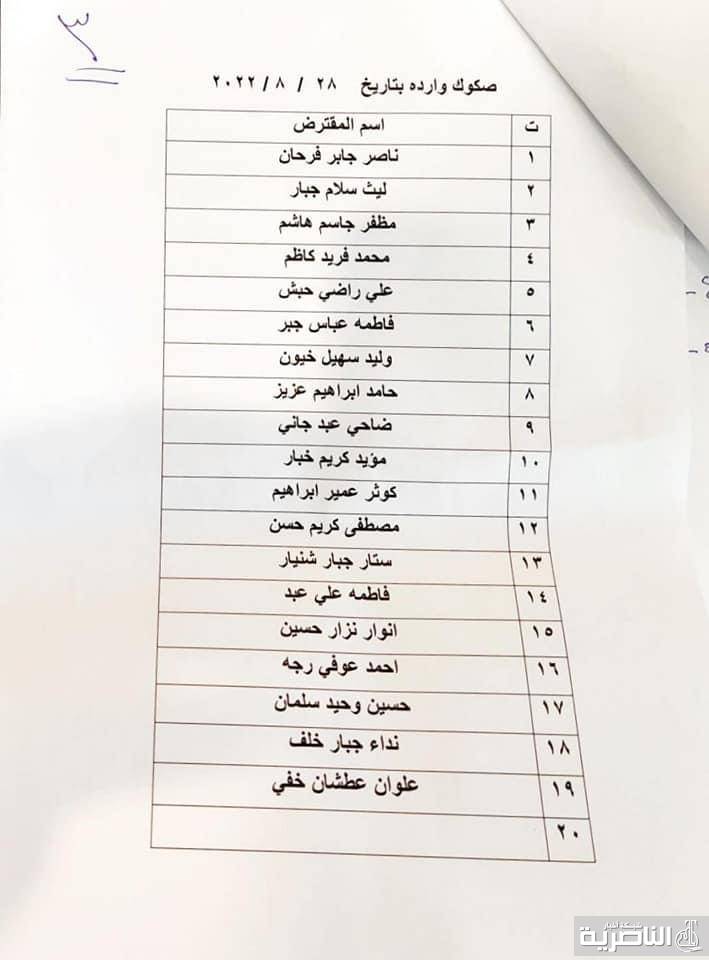 ٣
صكوك وارده بتاريخ ٢٨ / ٨ / ٢٠٢٢
ت اسم المقترض
١ ناصر جابر فرحان
٢ ليث سلام جبار
٣ مظفر جاسم هاشم
٤ محمد فريد كاظم
٥ علي راضي حبش
٦ فاطمه عباس جبر
٧ وليد سهيل خيون
٨ حامد ابراهيم عزيز
٩ ضاحي عبد جاني
١٠ مؤيد كريم خبار
١١ كوثر عمير ابراهيم
١٢ مصطفى كريم حسن
١٣ ستار جبار شنيار
١٤ فاطمه علي عبد
١٥ انوار نزار حسين
١٦ احمد عوفي رجه
١٧ حسين وحيد سلمان
١٨ نداء جبار خلف
١٩ علوان عطشان خفي
٢٠
الناصرية